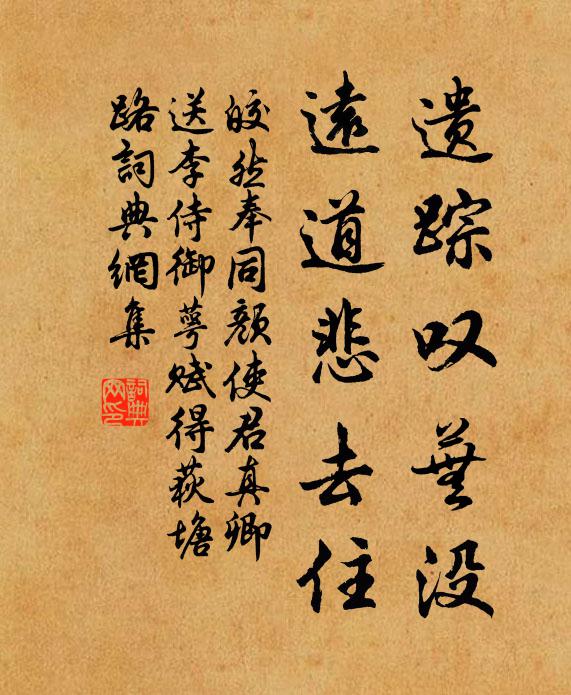 遗踪叹芜没
遠道悲去住
皎然奉同颜使君真卿
送李侍御萼赋得荻塘
路詞典網集
詞典
网印